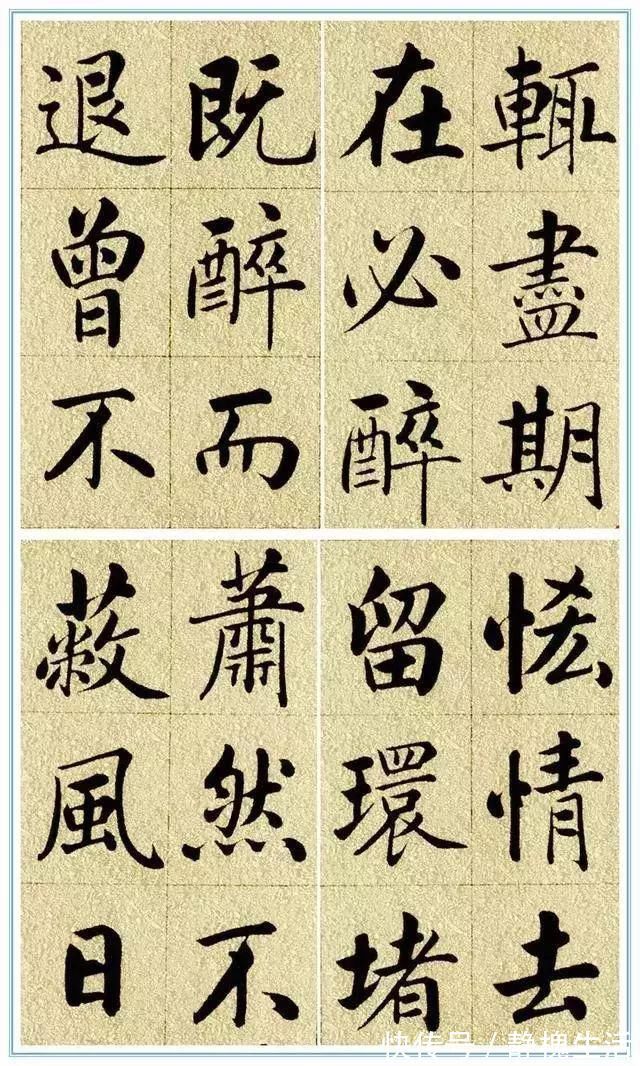 輒盡期
在必醉
既醉而
退曾不
恡情去
留環堵
蕭然不
蔽風日
快传号／静槐生活